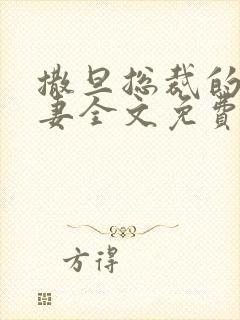 撒旦总裁的
妻全文免費
方得